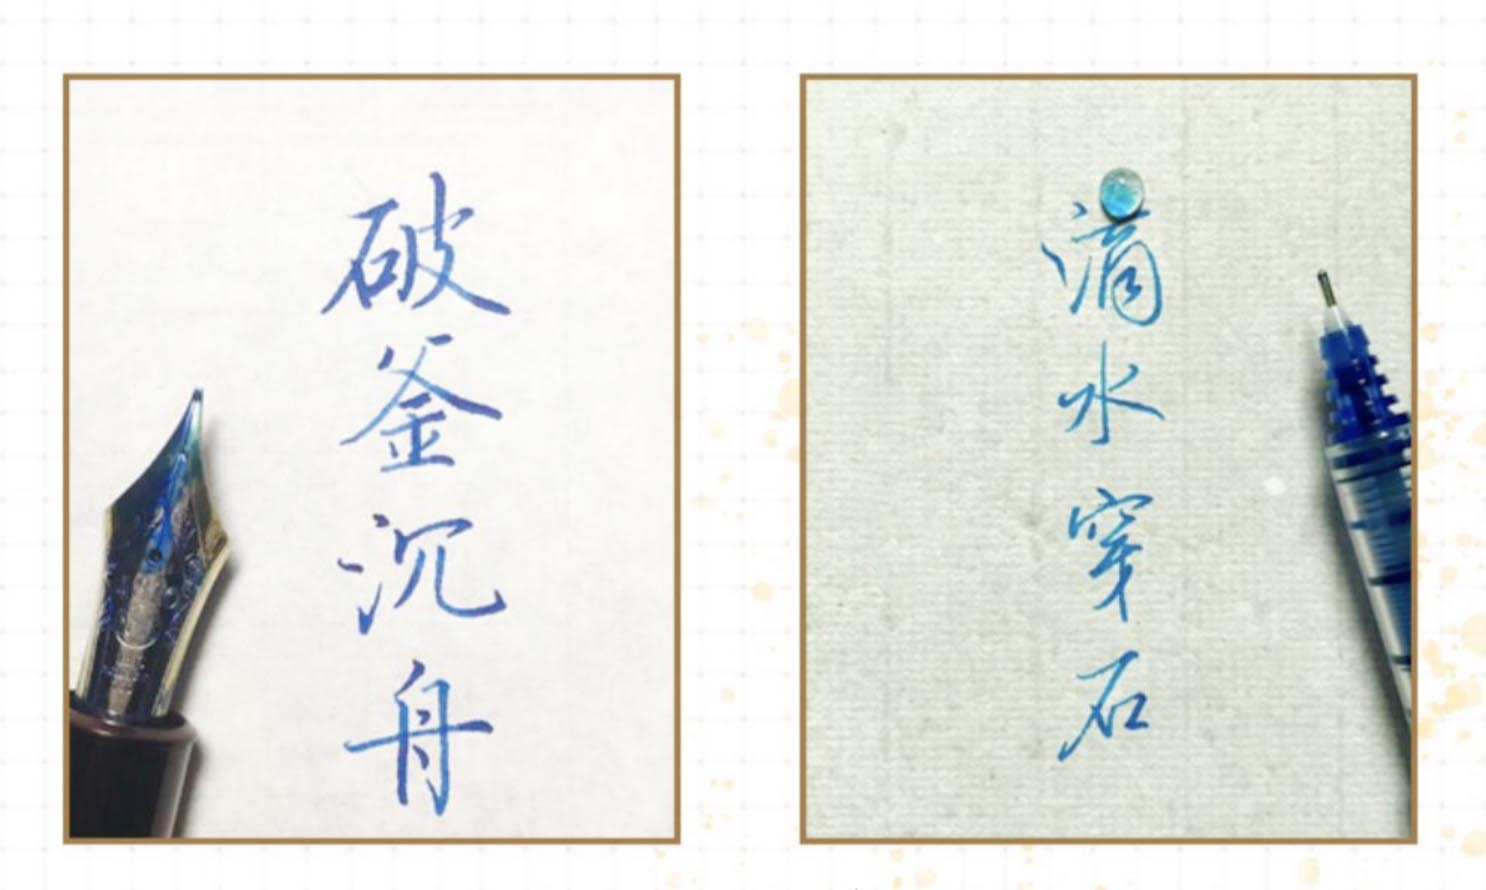 破釜沉舟
滴水穿石